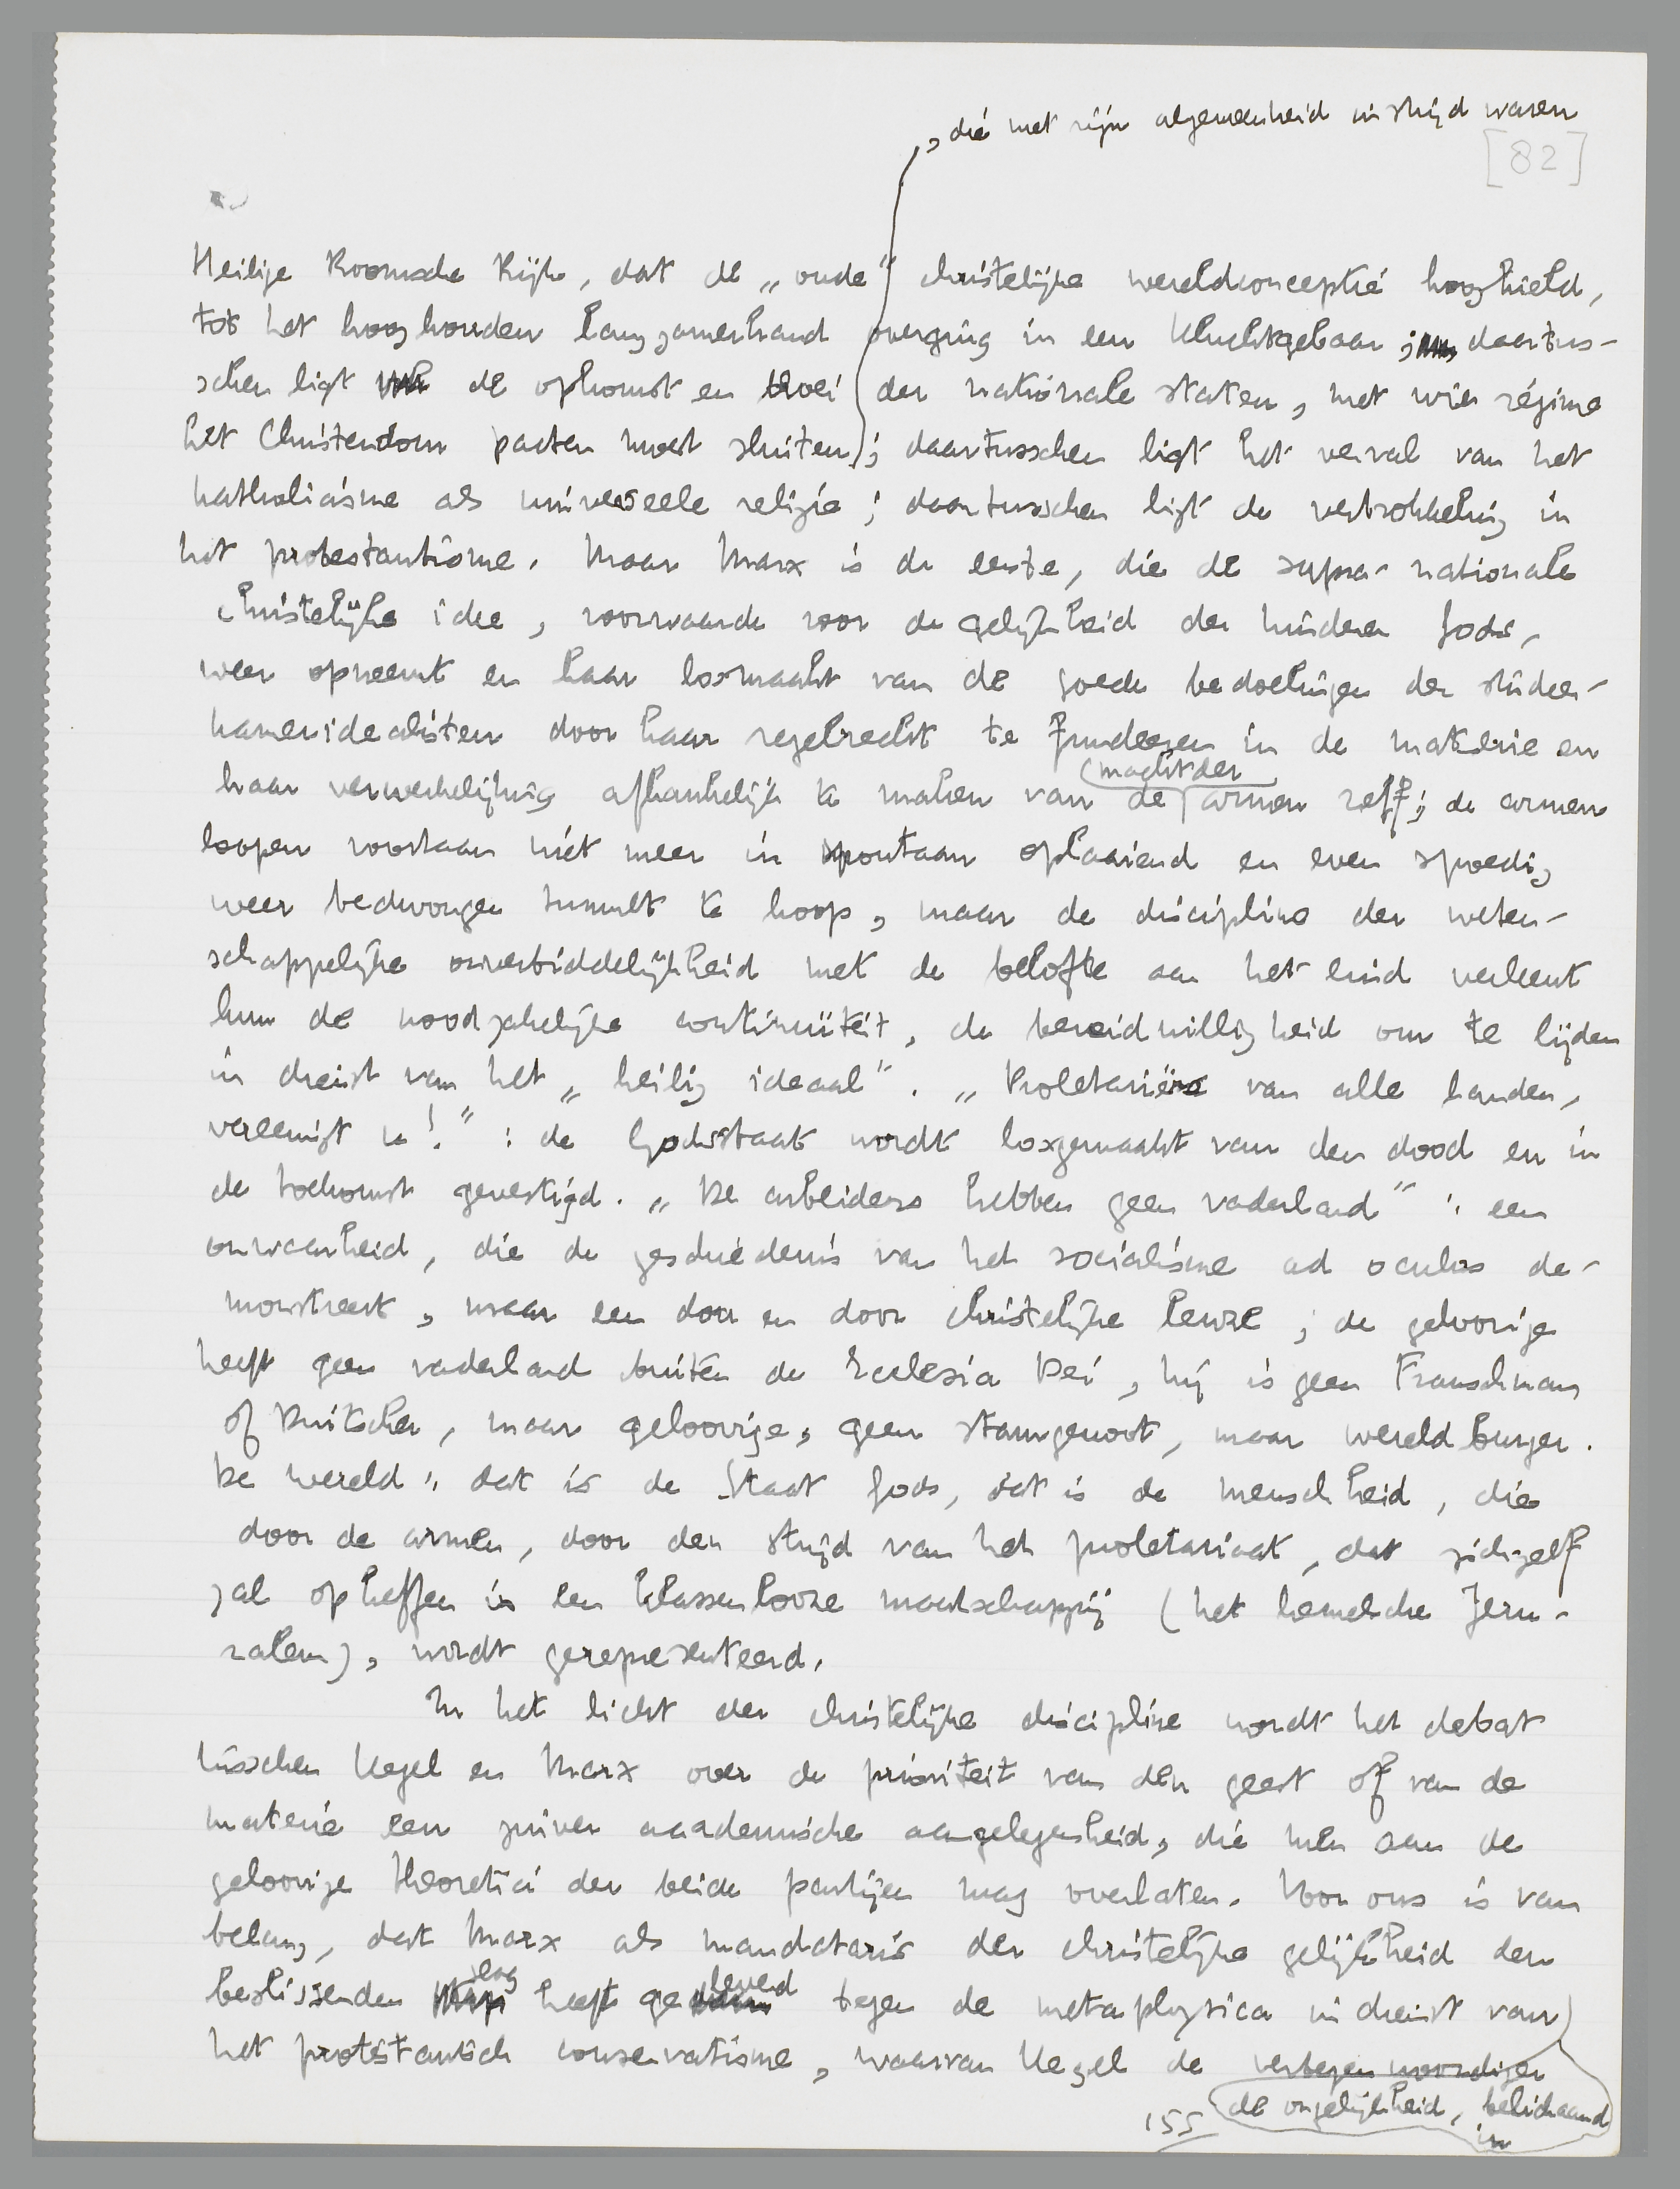 , die met zijn algemeenheid in strijd waren
[82]
Heilige Roomsche Rijk, dat de „oude” christelijke wereldconceptie hooghield,
tot het hooghouden langzamerhand overging in een kluchtgebaar; daartus-
schen ligt de opkomst en bloei der nationale staten, met wier régime
het Christendom pacten moest sluiten; daartusschen ligt het verval van het
katholicisme als universeele religie; daartusschen ligt de verbrokkeling in
het protestantisme. Maar Marx is de eerste, die de supra-nationale
christelijke idee, voorwaarde voor de gelijkheid der kinderen Gods,
weer opneemt en haar losmaakt van de goede bedoelingen der studeer-
kameridealisten door haar regelrecht te fundeeren in de materie en
(macht der
haar verwerkelijking afhankelijk te maken van de armen zelf; de armen
loopen voortaan niet meer in spontaan oplaaiend en even spoedig
weer bedwongen tumult te hoop, maar de discipline der weten-
schappelijke onverbiddelijkheid met de belofte aan het eind verleent
hun de noodzakelijke continuïteit, de bereidwilligheid om te lijden
in dienst van het „heilig ideaal”. „Proletariërs van alle landen,
vereenigt u!” : de Godsstaat wordt losgemaakt van den dood en in
de toekomst gevestigd. „De arbeiders hebben geen vaderland” : een
onwaarheid, die de geschiedenis van het socialisme ad oculos de-
monstreert, maar een door en door christelijke leuze; de geloovige
heeft geen vaderland buiten de Ecclesia Dei, hij is geen Franschman
of Duitscher, maar geloovige, geen stamgenoot, maar wereldburger.
De wereld: dat is de Staat Gods, dat is de menschheid, die
door de armen, door den strijd van het proletariaat, dat zichzelf
zal opheffen in een klassenlooze maatschappij (het hemelsche Jeru-
zalem), wordt gerepresenteerd.
In het licht der christelijke discipline wordt het debat
tusschen Hegel en Marx over de prioriteit van den geest of van de
materie een zuiver academische aangelegenheid, die men aan de
geloovige theoretici der beide partijen mag overlaten. Voor ons is van
belang, dat Marx als mandataris der christelijke gelijkheid den
slag leverd
beslissenden heeft ge tegen de metaphysica in dienst van
het protestantsch conservatisme, waarvan Hegel de vertegenwoordiger
de ongelijkheid, belichaamd
in
155